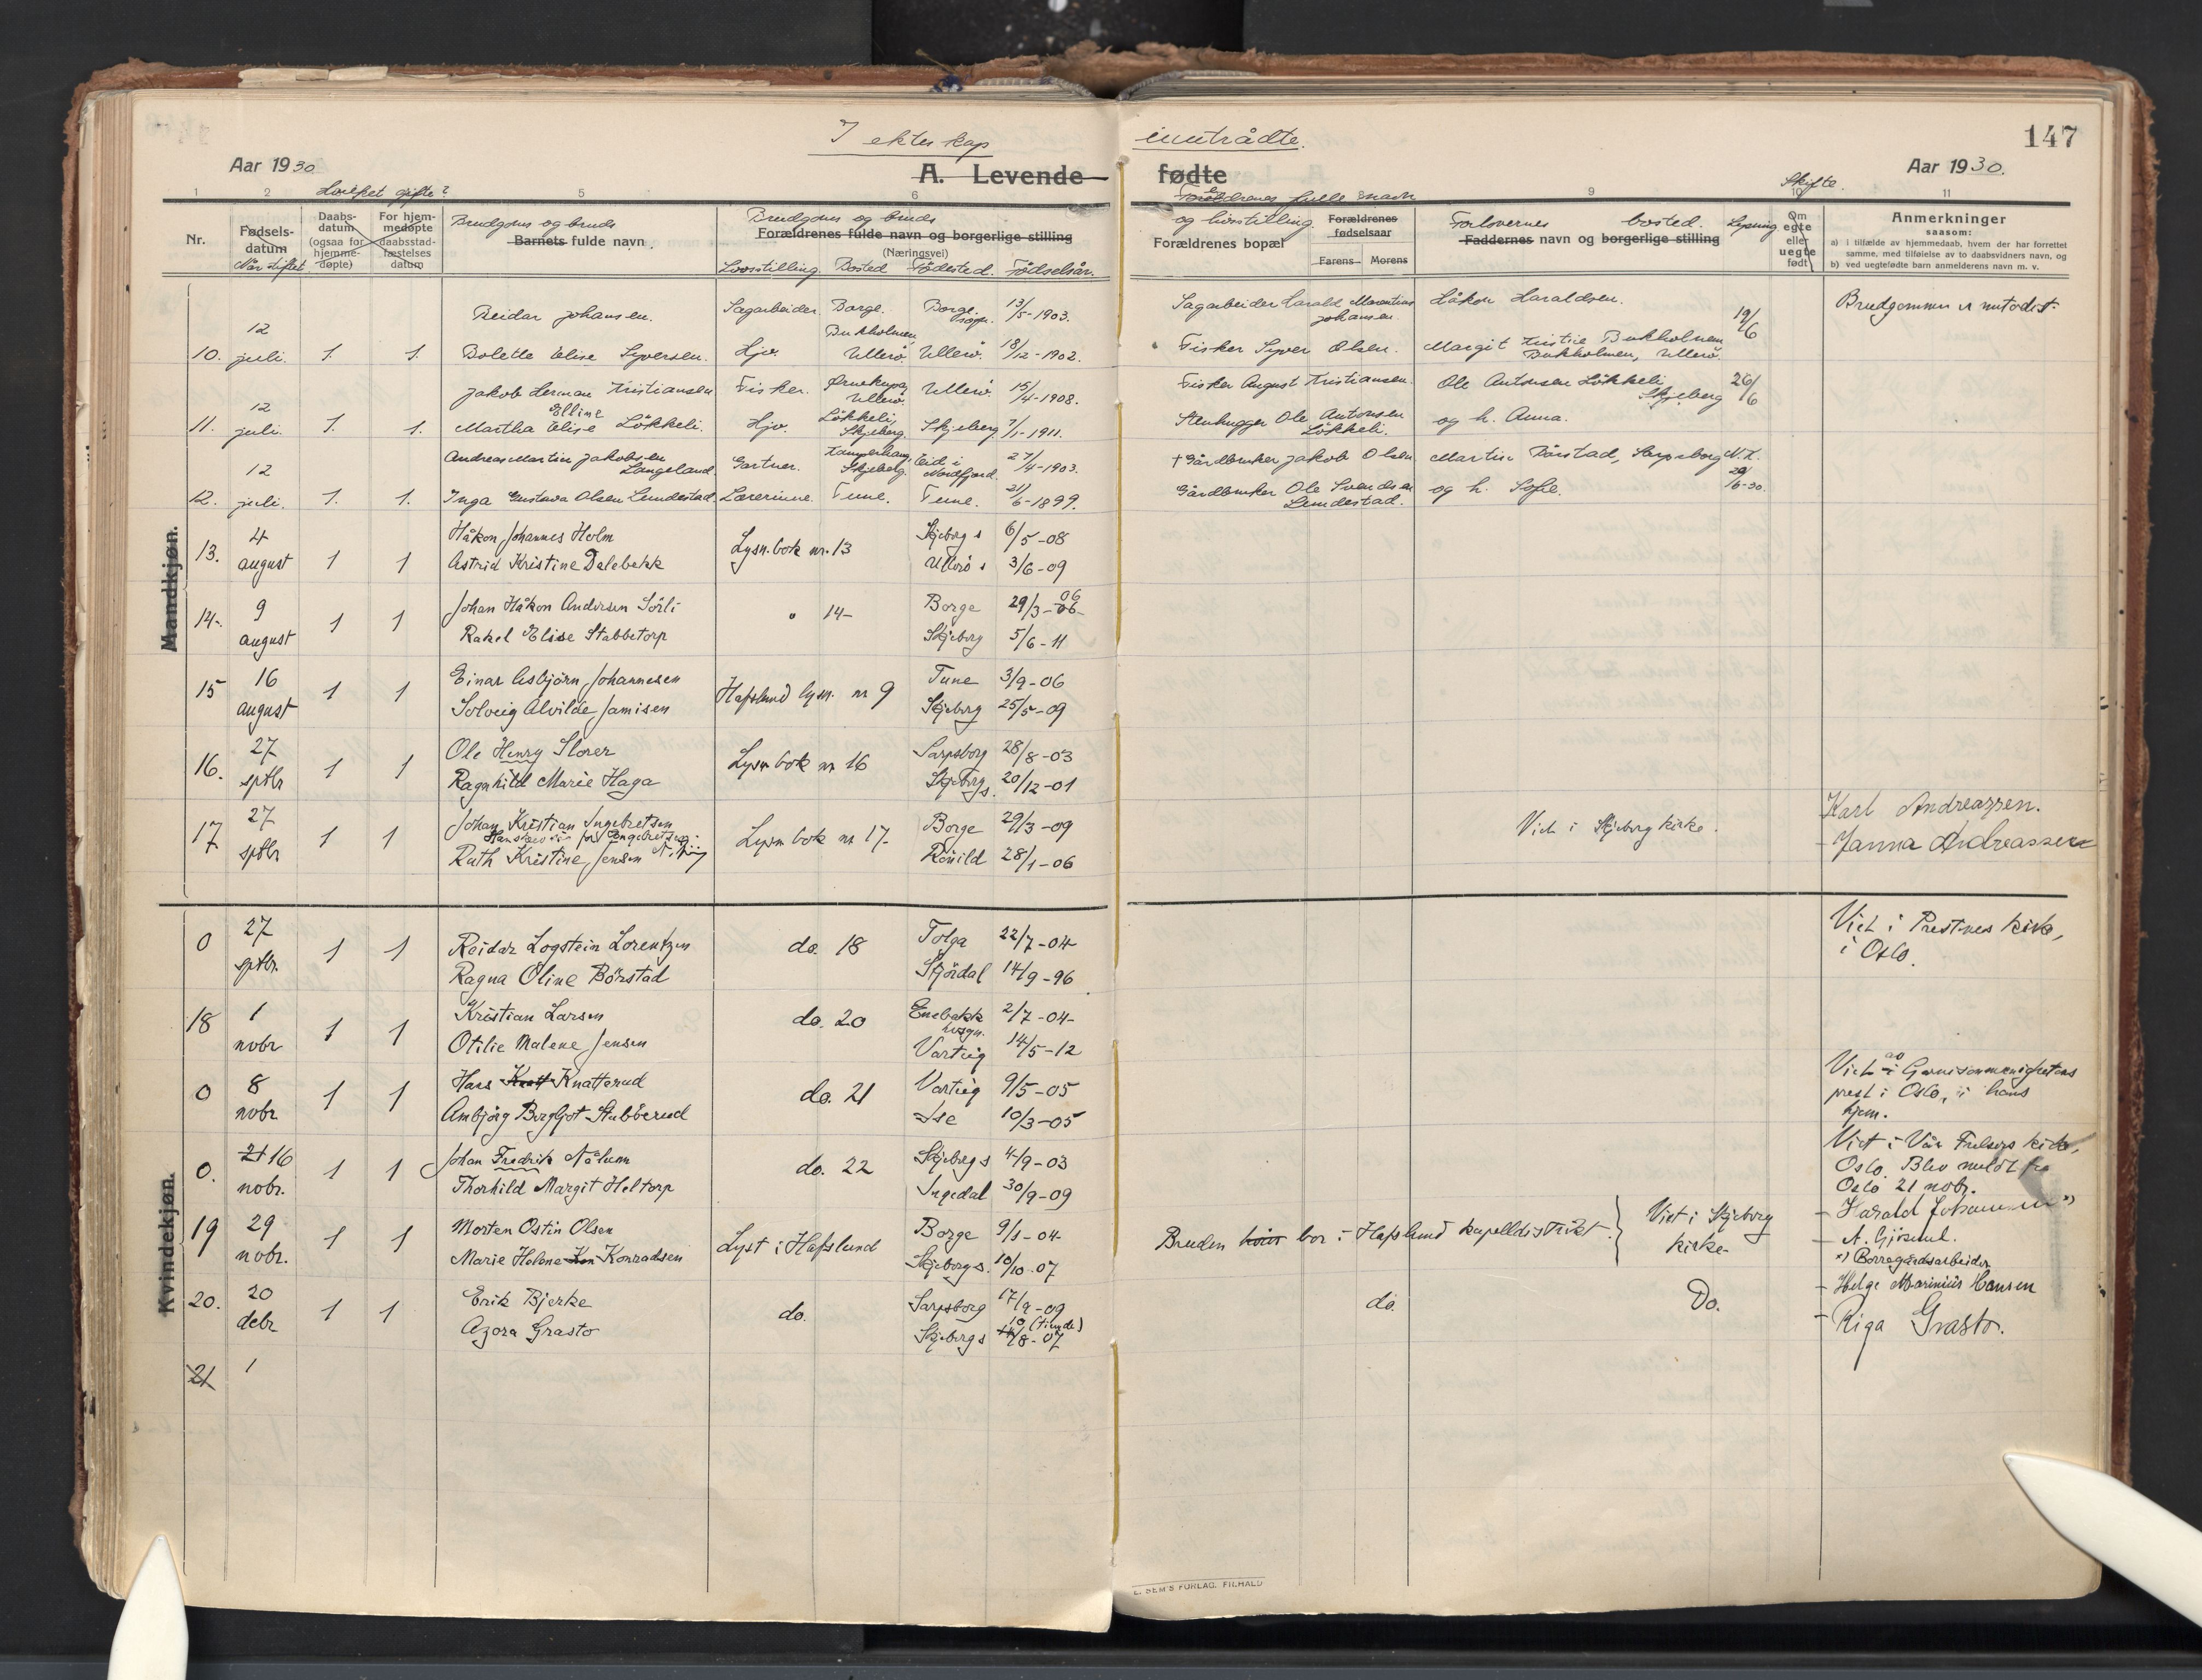 I ekteskap inntrådte.
147
Aar 1930
A. Levende fødte
Aar 1930.
1 2 5 6 9 10 11
Nr.
Fødsels-datum
Når viftet
Daabs-datum (ogsaa for hjemme-døpte)
For hjem-medøpte daabsstad-fæstelses datum
Brudgoms og bruds
Barnets fulde navn.
Brudgoms og bruds
Forældrenes fulde navn og borgerlige stilling
(Næringsvei)
Livsstilling. Bosted Födested. Födselsår.
Forældrenes fulle navn
og livsstilling.
Forældrenes bopæl
Forældrenes fødselsaar
Farens Morens
Forlovernes bosted.
Faddernes navn og borgerlige stilling
Lysning
Skifte.
Om egte eller uegte født
Anmerkninger
saasom:
a) i tilfælde av hjemmedaab, hvem der har forrettet
samme, med tilføielse av to daabsvidners navn, og
b) ved uegtefødte barn anmelderens navn m. v.
Mandkjøn.
Reidar Johansen. Sagarbeider Borge. Borge sogn. 13/5-1903. Sagarbeider Harald Marentius Johansen Håkon Haraldsen. 19/6 Brudgommen er metodist.
10. 12 juli. 1. 1. Bolette Elise Syversen. Hjv. Bukholmen, Ullerö. Ullerö. 18/12-1902. Fisker Syver Olsen. Margit Kristie Bukholmen Bukholmen, Ullerö.
Jakob Herman Kristiansen Fisker. Ørnekupa, Ullerö. Ullerö. 15/4-1908. Fisker August Kristiansen. Ole Antonsen Lökkeli, Skjeberg 26/6
11. 12 juli. 1. 1. Martha Elise Elline Lökkeli. Hjv. Lökkeli, Skjeberg. Skjeberg 7/1-1911. Stenhugger Ole Antonsen Lökkeli. og h. Anna.
Andreas Martin Jakobsen Langeland. Gartner. Skjeberg. Eid i Nordfjord. 27/4-1903. † Gårdbruker Jakob Olsen Martin Börstad, Sarpsborg
12. 12 juli. 1. 1. Inga Gustava Olsen Lundestad Lærerinne. Tune. Tune. 21/6-1899. Gårdbruker Ole Svendsen Lundestad. og h. Sofie. 28/6-30.
13. 4 august 1 1 Håkon Johannes Holm Lysn. bok nr. 13 Skjeberg s 6/5-08
Astrid Kristine Dalebekk Ullerö s 3/6-09
14. 9 august 1 1 Johan Håkon Andersen Sörli " 14- Borge 29/3-06
Rakel Elise Stabbetorp Skjeberg 5/6-11
15 16 august 1 1 Einar Asbjörn Johannesen Hafslund lysn. nr 9 Tune 3/9-06
Solveig Alvilde Jamisen Skjeberg 25/5-09
16. 27 septbr 1 1 Ole Henry Slorer Lysn bok nr 16 Sarpsborg 28/8-03
Ragnhild Marie Haga Skjeberg s. 20/12-01
17 27 septbr 1 1 Johan Kristian Ingebretsen Lysn bok nr 17- Borge 29/3-09 Viet i Skjeberg kirke. Karl Andreassen.
Ruth Kristine Jensen 28/1-06 Janna Andreassen
Kvindekjøn.
0 27 septbr. 1 1 Reidar Logstein Lorentzen do. 18 Tolga 22/7-04 Viet i Prestnes kirke,
Ragna Oline Börstad Stjördal 14/9-96 i Oslo.
18 1 nobr 1 1 Kristian Larsen do. 20 Enebakk hvsgn. 2/7-04-
Otilie Malene Jensen Varteig 14/5-12
0 8 nobr 1 1 Hans Knatt Knatterud do. 21 Varteig 9/5-05 Viet i av Garnisonmenighetens
Ambjörg Bergljot Stubberud Ise 10/3-05 prest i Oslo, i hans hjem.
0. 21 16 nobr. 1 1 Johan Fredrik Nålum do. 22 Skjeberg s 4/9-03 Viet i Vår Frelsers kirke,
Thorhild Margit Heltorp Ingedal 30/9-09 Oslo. Blev meldt fra Oslo 21 nobr.
19 29 nobr. 1 1 Morten Ostin Olsen Lyst i Hafslund Borge 9/1-04 Bruden bor i Hafslund kapelldistrikt. Viet i Skjeberg kirke - Harald Johannesen x)
Marie Helene Kon Konradsen Skjeberg s. 10/10-07 - A. Gjösund.
x) Borregårdsarbeider
20. 20 debr 1 1 Erik Bjerke do. Sarpsborg 17/9-09 do. Do. - Helge Marinius Hansen
Azora Grasto Skjeberg s 10 (tiende) 14/8-07 - Riga Grasto.
21 1
E. SEM'S FORLAG, FR.HALD